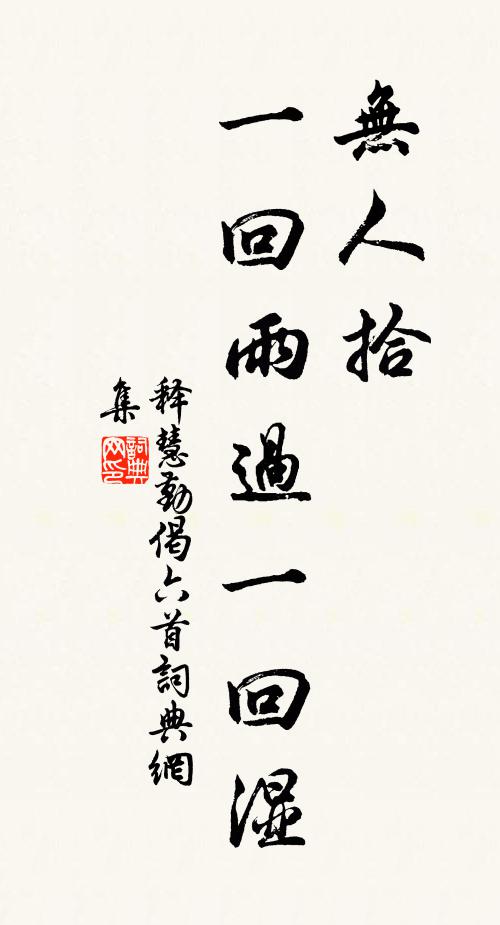 無人拾
一回雨過一回濕
释慧勤偈六首詞典網
集
詞典
网印